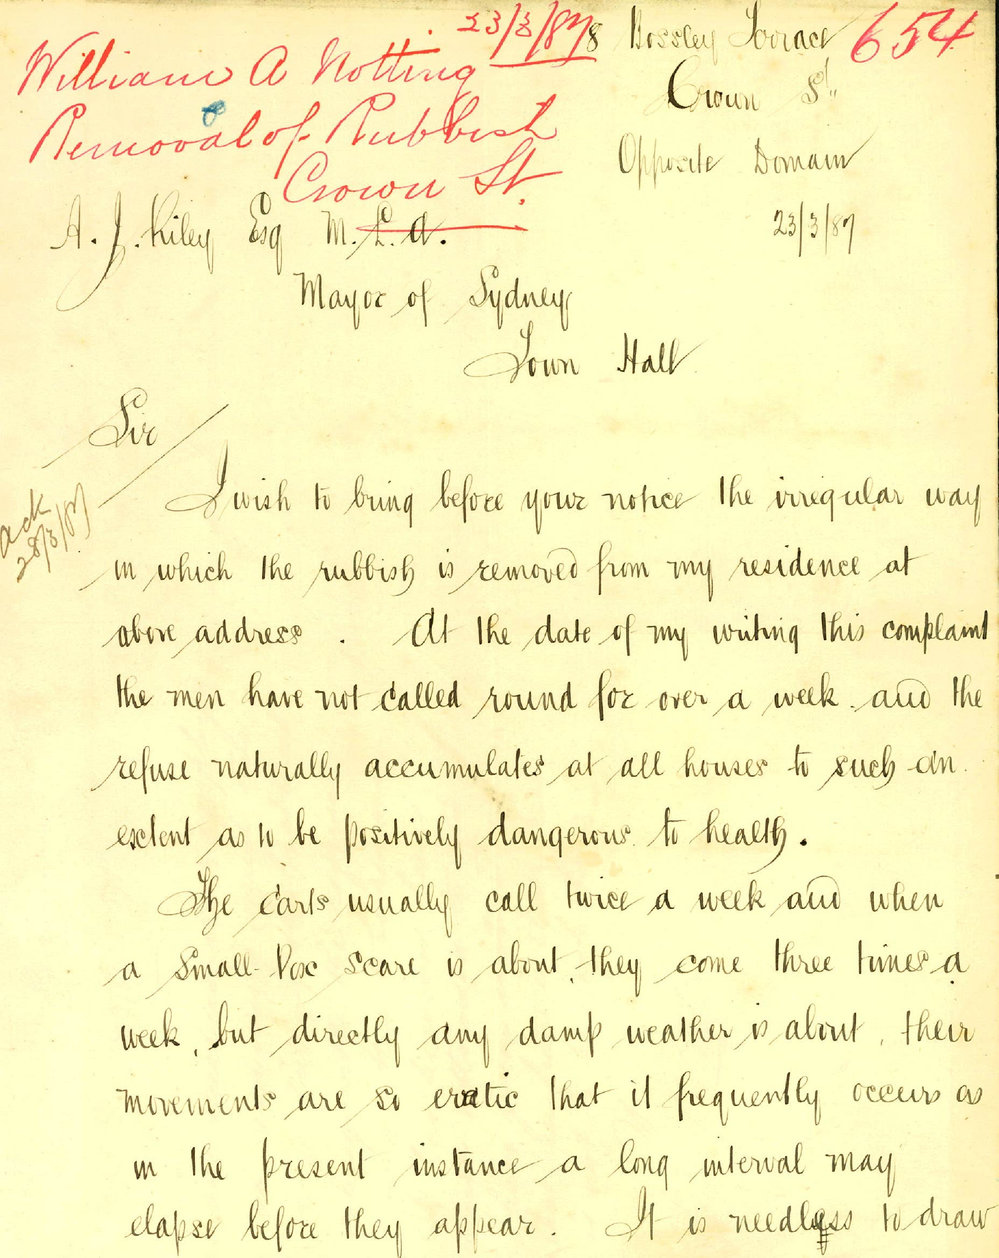 23/3/87
654
William A Notting
Removal of Rubbish
Crown St.
8 Bossley Terrace
Crown St.
Opposite Domain
23/3/87
A. J. Riley Esq M.L.A.
Mayor of Sydney
Town Hall
Sir
ack
28/3/87
I wish to bring before your notice the irregular way
in which the rubbish is removed from my residence at
above address. At the date of my writing this complaint
the men have not called round for over a week and the
refuse naturally accumulates at all houses to such an
extent as to be positively dangerous to health.
The carts usually call twice a week and when
a Small-Pox scare is about, they come three times a
week, but directly any damp weather is about, their
movements are so eratic that it frequently occurs as
in the present instance a long interval may
elapse before they appear. It is needless to draw